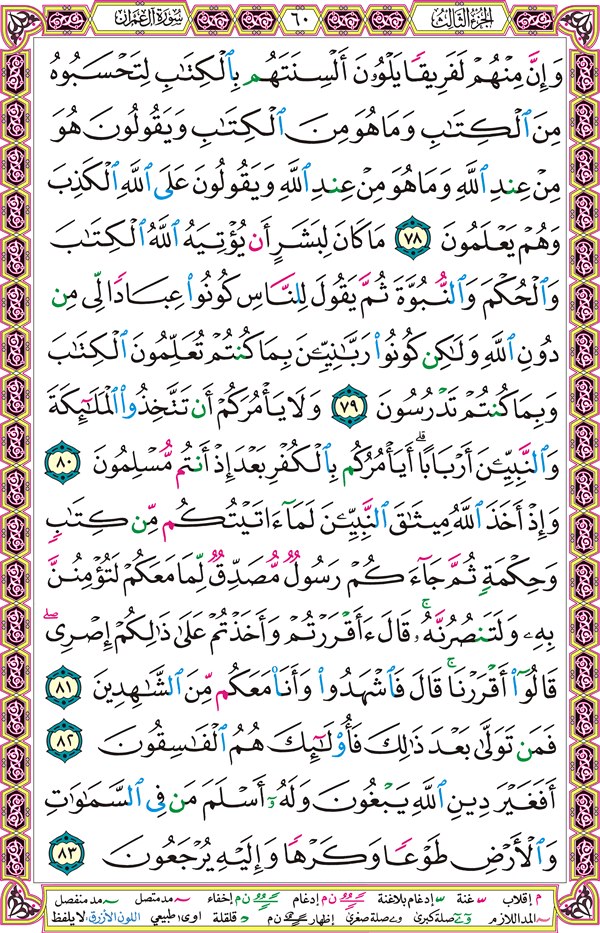 الجزء الثالث
٦٠
سورة آل عمران
وَإِنَّ مِنْهُمْ لَفَرِيقًا يَلْوُۥنَ أَلْسِنَتَهُم بِٱلْكِتَٰبِ لِتَحْسَبُوهُ
مِنَ ٱلْكِتَٰبِ وَمَا هُوَ مِنَ ٱلْكِتَٰبِ وَيَقُولُونَ هُوَ
مِنْ عِندِ ٱللَّهِ وَمَا هُوَ مِنْ عِندِ ٱللَّهِ وَيَقُولُونَ عَلَى ٱللَّهِ ٱلْكَذِبَ
وَهُمْ يَعْلَمُونَ ٧٨ مَا كَانَ لِبَشَرٍ أَن يُؤْتِيَهُ ٱللَّهُ ٱلْكِتَٰبَ
وَٱلْحُكْمَ وَٱلنُّبُوَّةَ ثُمَّ يَقُولَ لِلنَّاسِ كُونُوا۟ عِبَادًا لِّى مِن
دُونِ ٱللَّهِ وَلَٰكِن كُونُوا۟ رَبَّٰنِيِّۦنَ بِمَا كُنتُمْ تُعَلِّمُونَ ٱلْكِتَٰبَ
وَبِمَا كُنتُمْ تَدْرُسُونَ ٧٩ وَلَا يَأْمُرَكُمْ أَن تَتَّخِذُوا۟ ٱلْمَلَٰٓئِكَةَ
وَٱلنَّبِيِّۦنَ أَرْبَابًا ۗ أَيَأْمُرُكُم بِٱلْكُفْرِ بَعْدَ إِذْ أَنتُم مُّسْلِمُونَ ٨٠
وَإِذْ أَخَذَ ٱللَّهُ مِيثَٰقَ ٱلنَّبِيِّۦنَ لَمَآ ءَاتَيْتُكُم مِّن كِتَٰبٍ
وَحِكْمَةٍ ثُمَّ جَآءَكُمْ رَسُولٌ مُّصَدِّقٌ لِّمَا مَعَكُمْ لَتُؤْمِنُنَّ
بِهِۦ وَلَتَنصُرُنَّهُۥ ۚ قَالَ ءَأَقْرَرْتُمْ وَأَخَذْتُمْ عَلَىٰ ذَٰلِكُمْ إِصْرِى ۖ
قَالُوٓا۟ أَقْرَرْنَا ۚ قَالَ فَٱشْهَدُوا۟ وَأَنَا۠ مَعَكُم مِّنَ ٱلشَّٰهِدِينَ ٨١
فَمَن تَوَلَّىٰ بَعْدَ ذَٰلِكَ فَأُو۟لَٰٓئِكَ هُمُ ٱلْفَٰسِقُونَ ٨٢
أَفَغَيْرَ دِينِ ٱللَّهِ يَبْغُونَ وَلَهُۥٓ أَسْلَمَ مَن فِى ٱلسَّمَٰوَٰتِ
وَٱلْأَرْضِ طَوْعًا وَكَرْهًا وَإِلَيْهِ يُرْجَعُونَ ٨٣
م إقلاب غنة إدغام بلاغنة ن م إدغام ن م إخفاء مد متصل مد منفصل
المد اللازم صلة كبرى صلة صغرى إظهار ن م قلقلة اوى: طبيعي اللون الأزرق: لا يلفظ